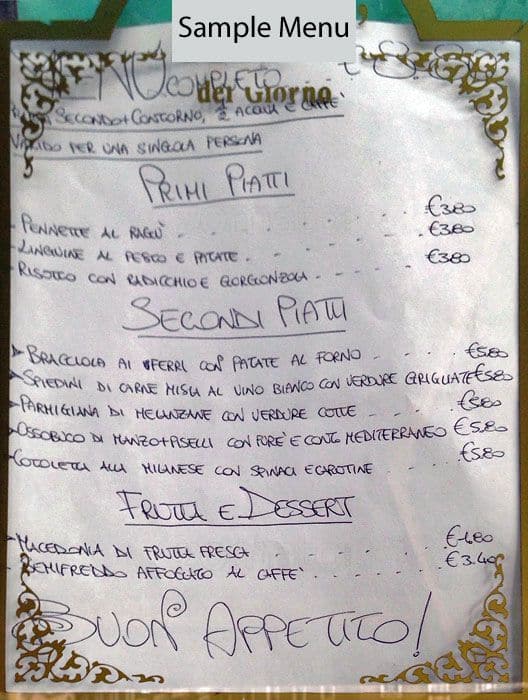 Sample Menu
MENÙ COMPLETO € 8.80
del Giorno
SECONDO+CONTORNO, ½ ACQUA E CAFFE'
VALIDO PER UNA SINGOLA PERSONA
PRIMI PIATTI
- PENNETTE AL RAGÙ €3.80
- LINGUINE AL PESCO E PATATE €3.80
- RISOTTO CON RADICCHIO E GORGONZOLA €3.80
SECONDI PIATTI
BRACCIOLA AI FERRI CON PATATE AL FORNO €5.80
SPIEDINI DI CARNE MISTA AL VINO BIANCO CON VERDURE GRIGLIATE €5.80
PARMIGIANA DI MELANZANE CON VERDURE COTTE €5.80
OSSOBUCO DI MANZO+PISELLI CON PURE' E CONT. MEDITERRANEO €5.80
COTOLETTA ALLA MILANESE CON SPINACI E CAROTINE €5.80
FRUTTA E DESSERT
MACEDONIA DI FRUTTA FRESCA €1.80
SEMIFREDDO AFFOGATO AL CAFFE' €3.40
BUON APPETITO!